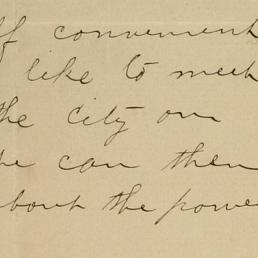 If convenient
like to meet
the city on
we can then
about the power